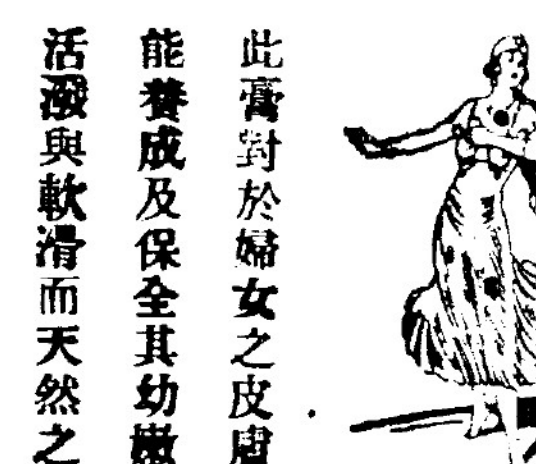 此膏對於婦女之皮膚
能養成及保全其幼嫩
活潑與軟滑而天然之